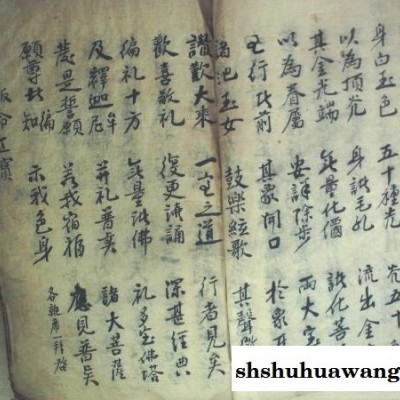 身白玉色 五十種光
以為頂光 身諸毛孔 流出金
其金光端 無量化佛 諸化菩
以為眷属 安詳徐步 雨大宝
行此前 其象開口 於象牙
池玉女 鼓樂絃歌 其聲
讚歎大来 一宝之道 行者見矣
歡喜敬礼 復更誦 深甚經典
徧礼十方 無量諸佛 礼多宝佛塔
及釋迦牟尼 并礼普賢 諸大菩薩
發是誓願 若我宿福 應見普賢
願尊此知 徧 示我色身
各 一拜
命 寶
shshuhuawang